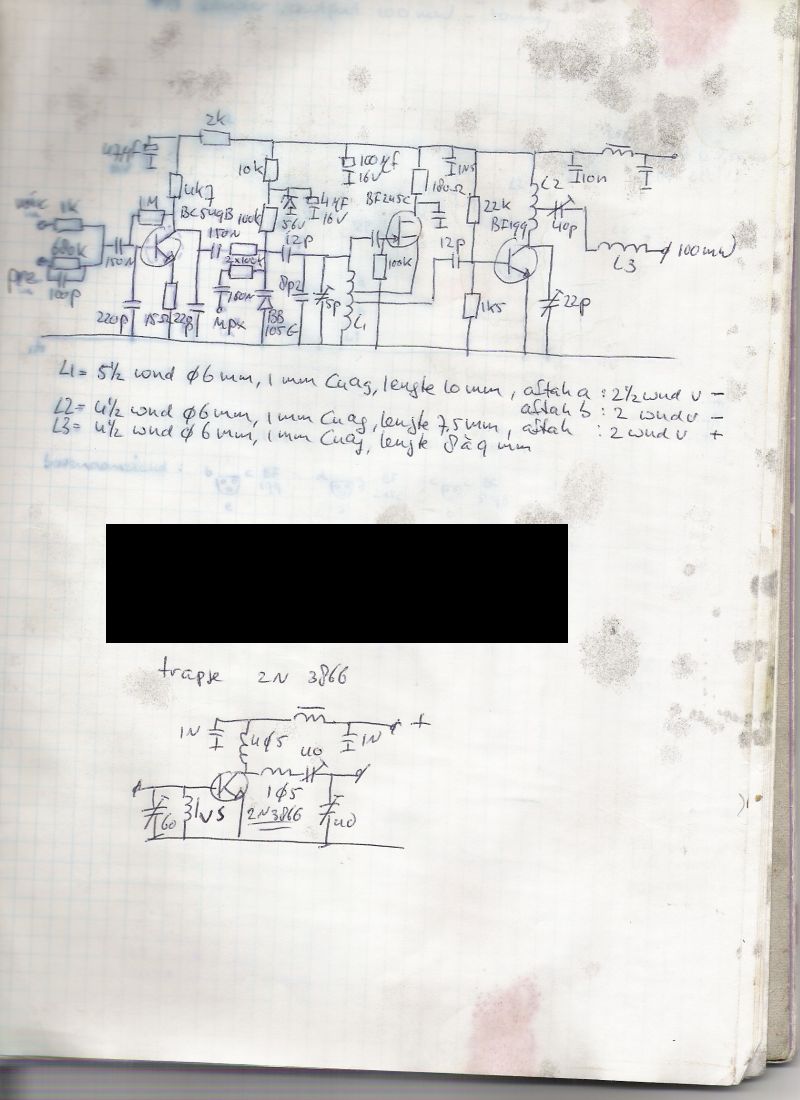 2k
47µf
10k
100µf
16V
1N5
10n
4k7
180Ω
L2
1M
BC549B
100k
56V
4µf
16V
BF245C
22k
BF199
40p
1k
680k
150N
150N
12p
100k
12p
L3
100mW
2x100k
100p
8p2
5p
22p
220p
15Ω
22p
150N
mpx
BB
105G
L1
1k5
L1= 5½ wnd φ6mm, 1mm CuAg, lengte 10mm, aftak a : 2½ wnd v -
aftak b : 2 wnd v -
L2= 4½ wnd φ6mm, 1mm CuAg, lengte 7,5mm, aftak : 2 wnd v +
L3= 4½ wnd φ6mm, 1mm CuAg, lengte 8 à 9 mm
trapje 2N 3866
1N
4φ5
1N
+
40
1φ5
60
VS
2N3866
40